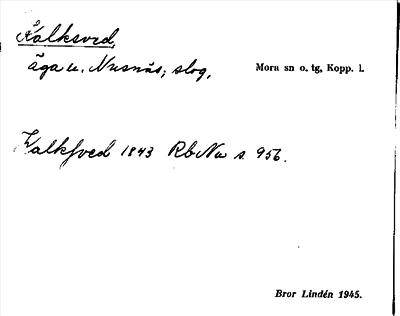 Kalksved,
äga u. Nusnäs; slog.
Mora sn o. tg, Kopp. l.
Kalksved 1843 Rb Nu s. 956.
Bror Lindén 1945.